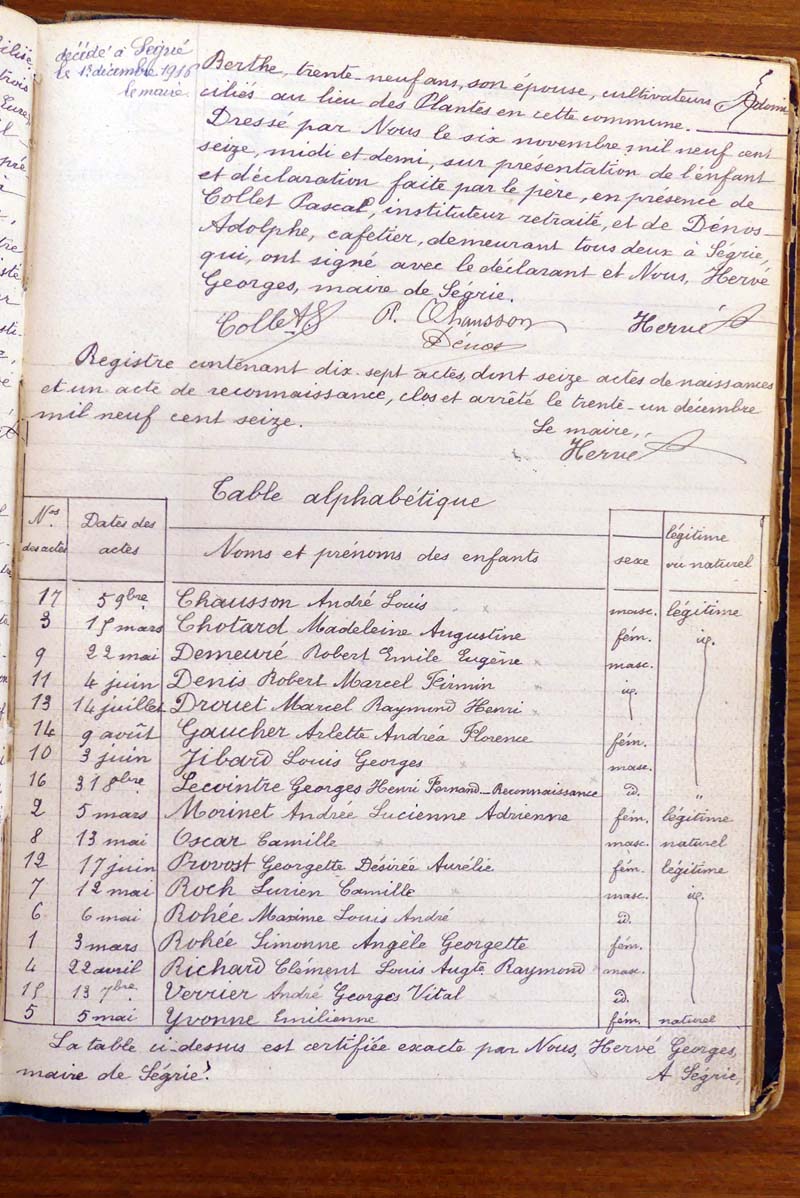 décédé à Ségrié
le 13 décembre 1916
le maire
Berthe, trente-neuf ans, son épouse, cultivateurs domi
ciliés au lieu des Plantes en cette commune.
Dressé par Nous le six novembre, mil neuf cent
seize, midi et demi, sur présentation de l'enfant
et déclaration faite par le père, en présence de
Collet Pascal, instituteur retraité, et de Dénos
Adolphe, cafetier, demeurant tous deux à Ségrie,
qui, ont signé avec le déclarant et Nous, Hervé
Georges, maire de Ségrie.
Collet P. Chausson Hervé
Dénos
Registre contenant dix-sept actes, dont seize actes de naissances
et un acte de reconnaissance, clos et arrêté le trente-un décembre
mil neuf cent seize.
Le maire,
Hervé
Table alphabétique
Nos des actes Dates des actes Noms et prénoms des enfants sexe légitime ou naturel
17 5 9bre Chausson André Louis masc. légitime
3 15 mars Chotard Madeleine Augustine fém. id.
9 22 mai Demeuré Robert Emile Eugène masc.
11 4 juin Denis Robert Marcel Firmin id.
13 14 juillet Drouet Marcel Raymond Henri
14 9 août Gaucher Arlette Andréa Florence fém.
10 3 juin Jibard Louis Georges masc.
16 31 8bre Lecointre Georges Henri Fernand _ Reconnaissance id. "
2 5 mars Morinet Andrée Lucienne Adrienne fém. légitime
8 13 mai Oscar Camille masc. naturel
12 17 juin Provost Georgette Désirée Aurélie fém. légitime
7 12 mai Roch Lucien Camille masc. id.
6 6 mai Rohée Maxime Louis André id.
1 3 mars Rohée Simonne Angèle Georgette fém.
4 22 avril Richard Clément Louis Augte Raymond masc.
15 13 7bre Verrier André Georges Vital id.
5 5 mai Yvonne Emilienne fém. naturel
La table ci-dessus est certifiée exacte par Nous, Hervé Georges,
maire de Ségrie. A Ségrie,